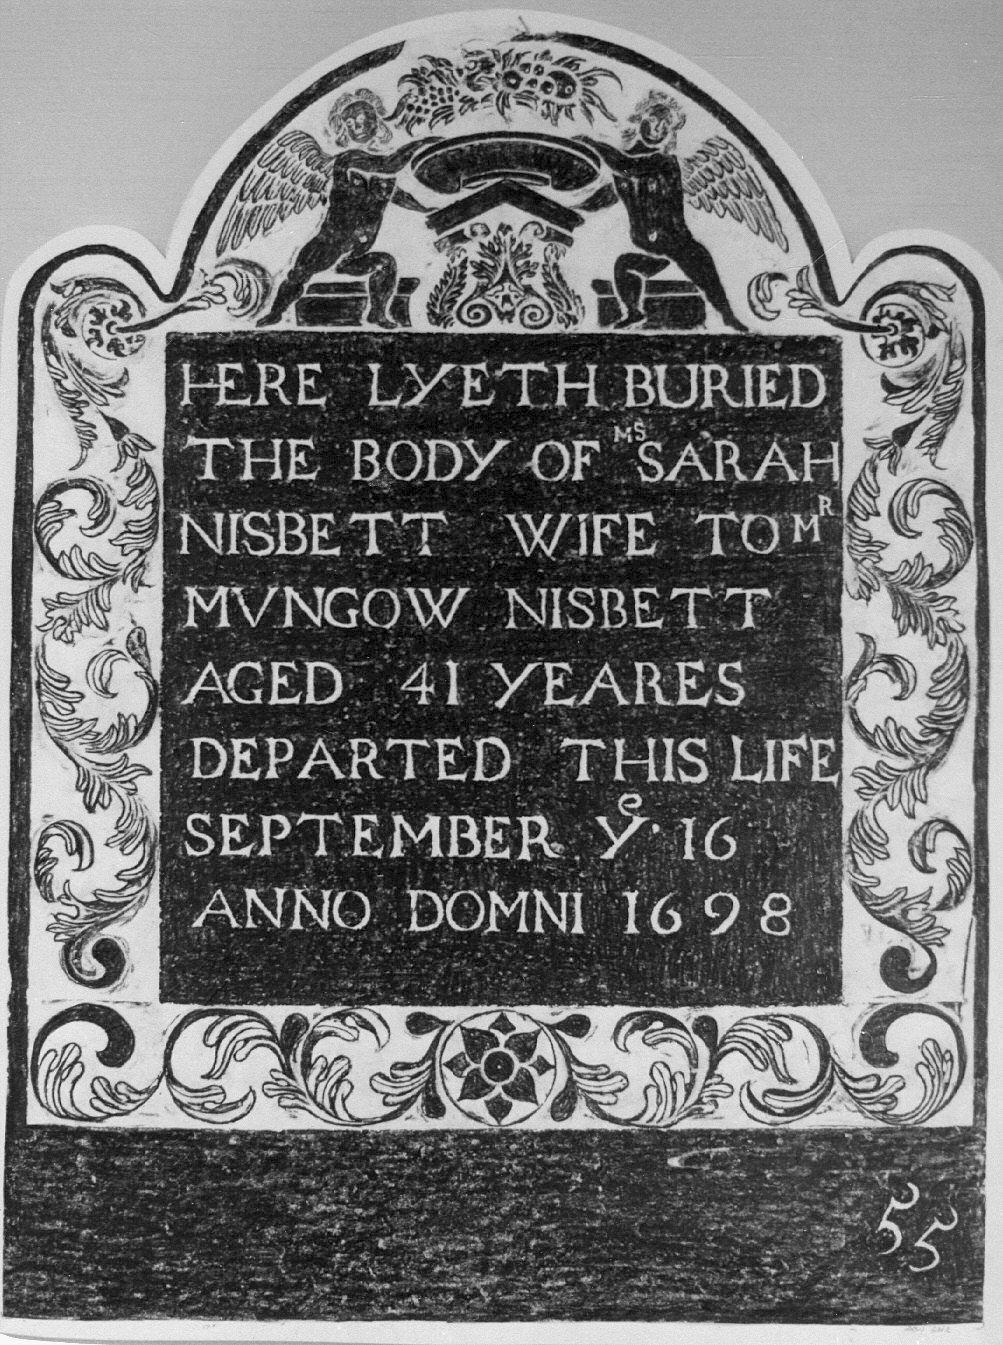 HERE LYETH BURIED
THE BODY OF MS SARAH
NISBETT WIFE TO MR
MVNGOW NISBETT
AGED 41 YEARES
DEPARTED THIS LIFE
SEPTEMBER Ye 16
ANNO DOMNI 1698
55